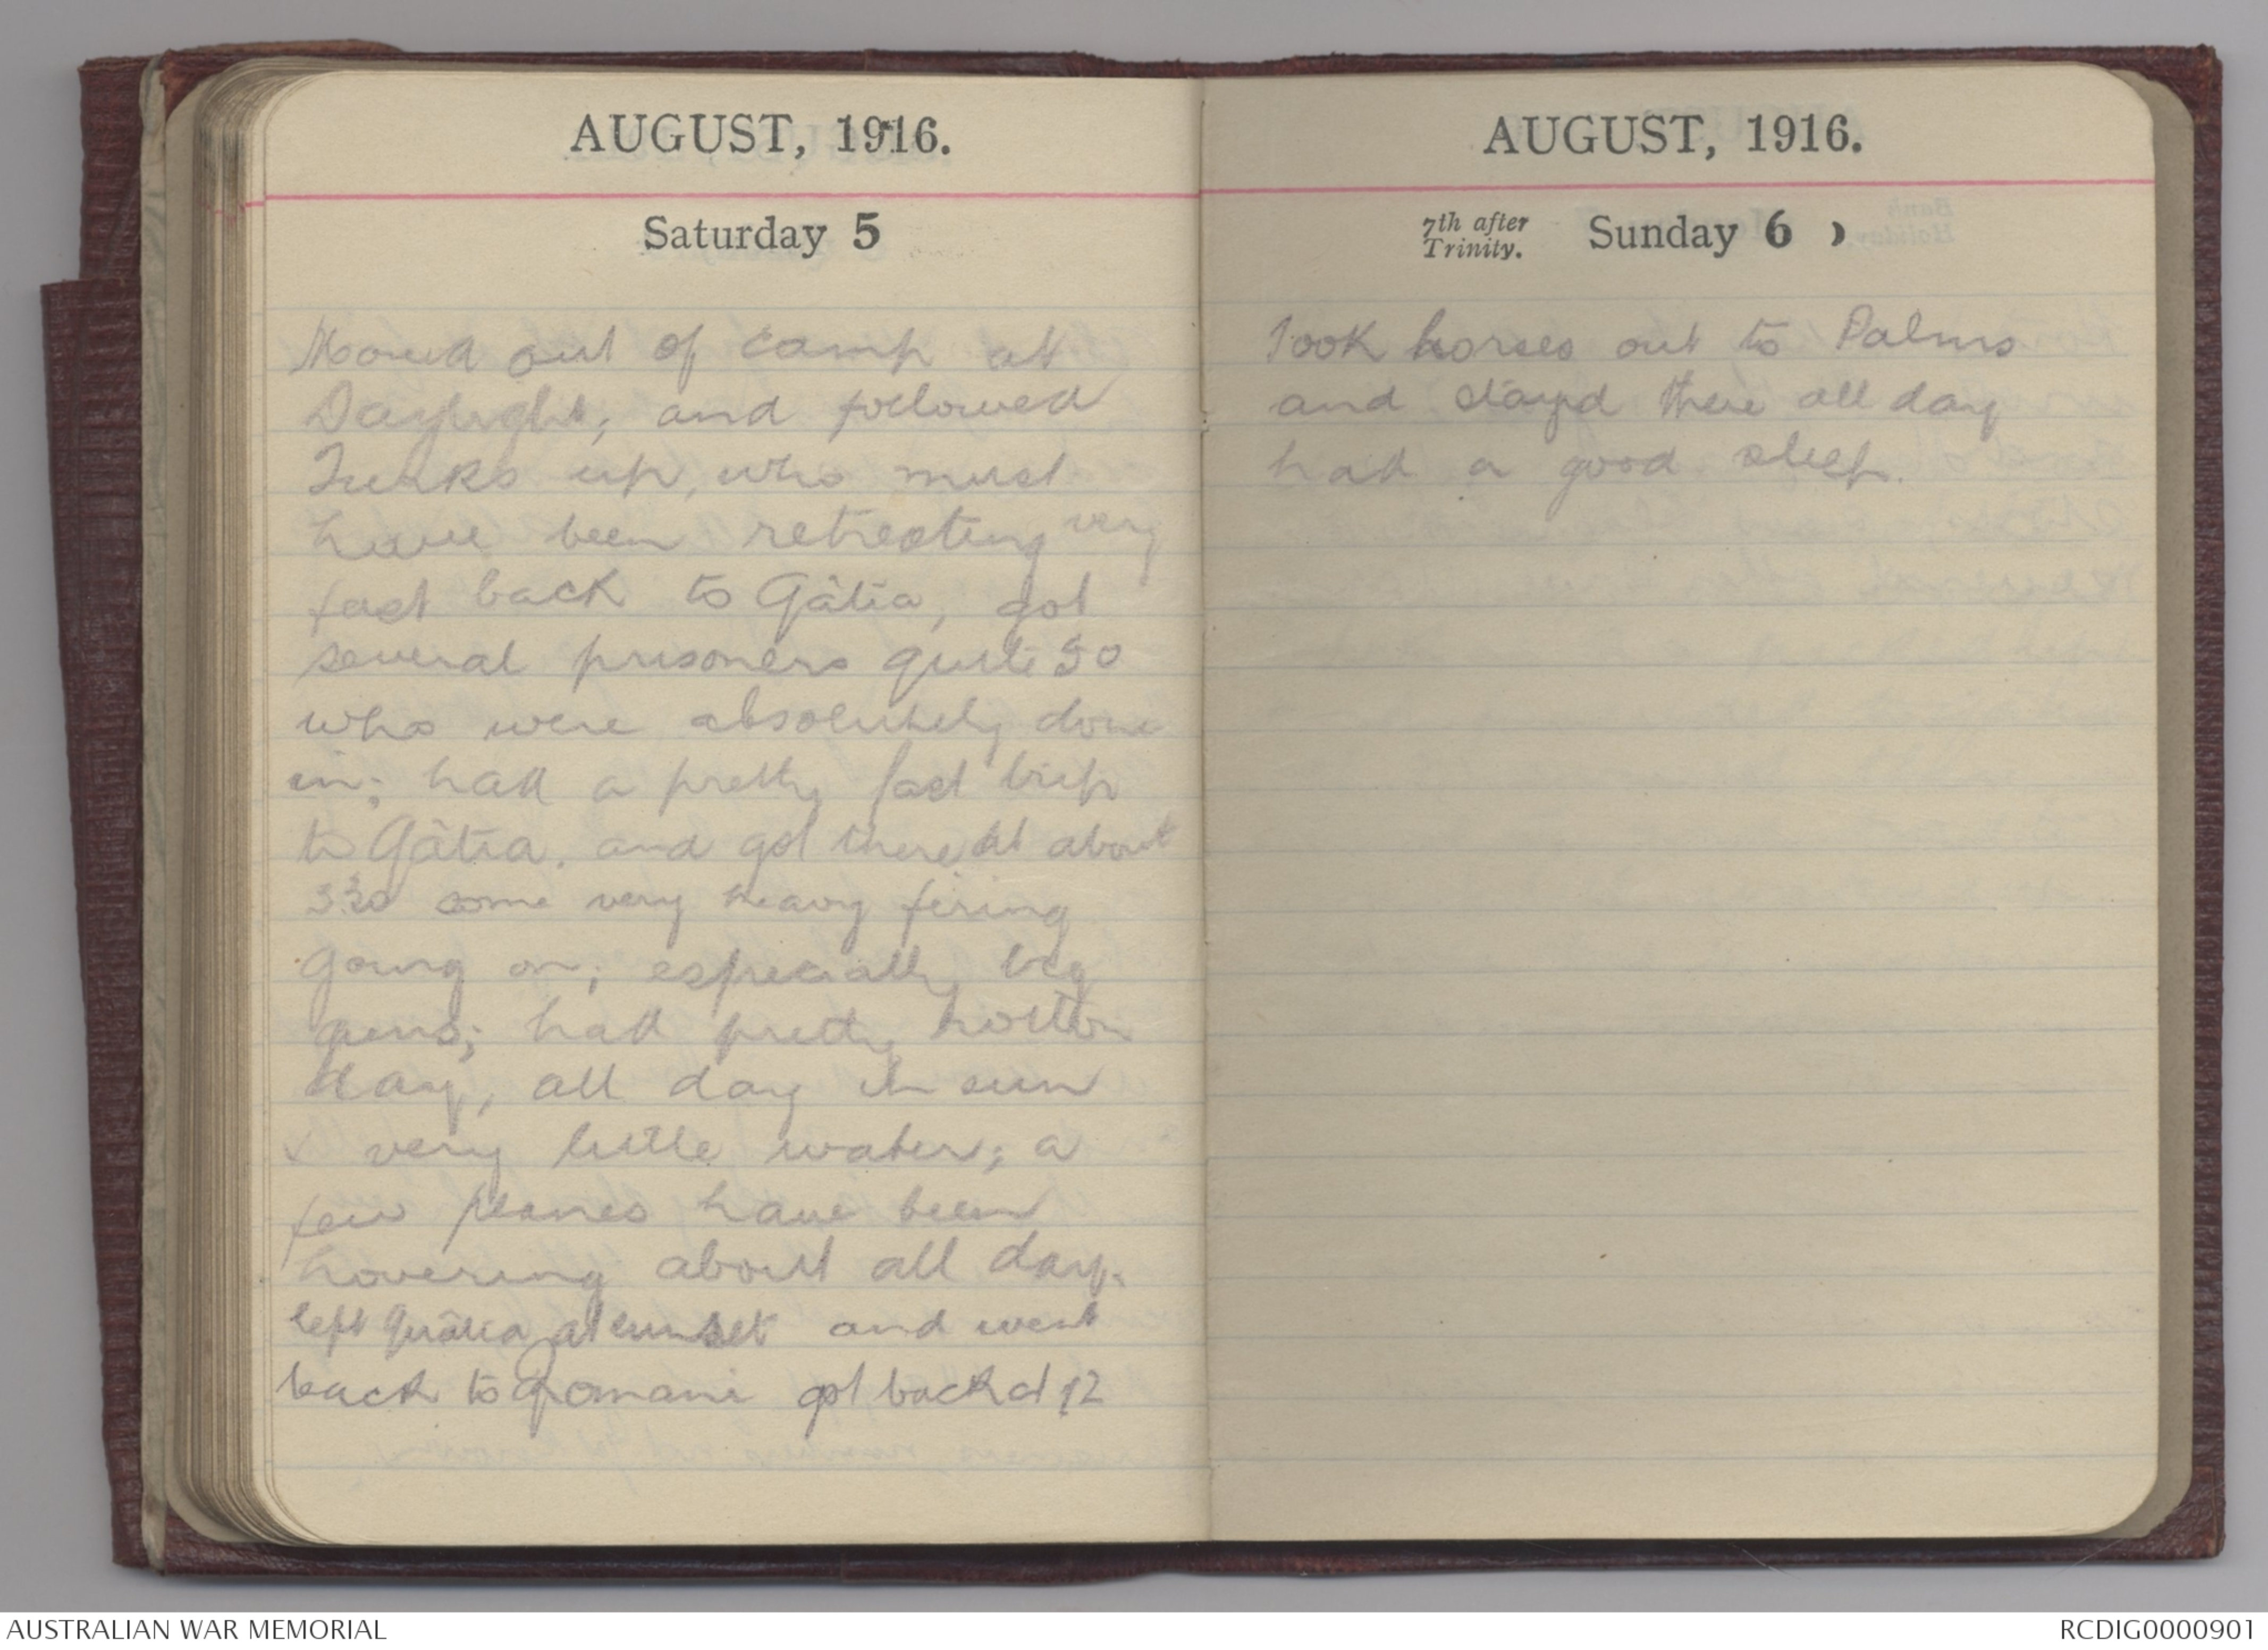 AUGUST, 1916.
Saturday 5
Moved out of camp at
Daylight, and followed
Turks up, who must
have been retreating very
fast back to Gâtia, got
several prisoners quite 50
who were absolutely done
in; had a pretty fast trip
to Gâtia. and got there at about
3.30 some very heavy firing
going on; especially big
guns; had pretty hotter
day, all day in sun
& very little water; a
few planes have been
hovering about all day.
left Quâtia at sunset and went
back to Romani got back at 12
AUGUST, 1916.
7th after Trinity. Sunday 6 ☽
Took horses out to Palms
and stayd there all day
had a good sleep.
AUSTRALIAN WAR MEMORIAL
RCDIG0000901